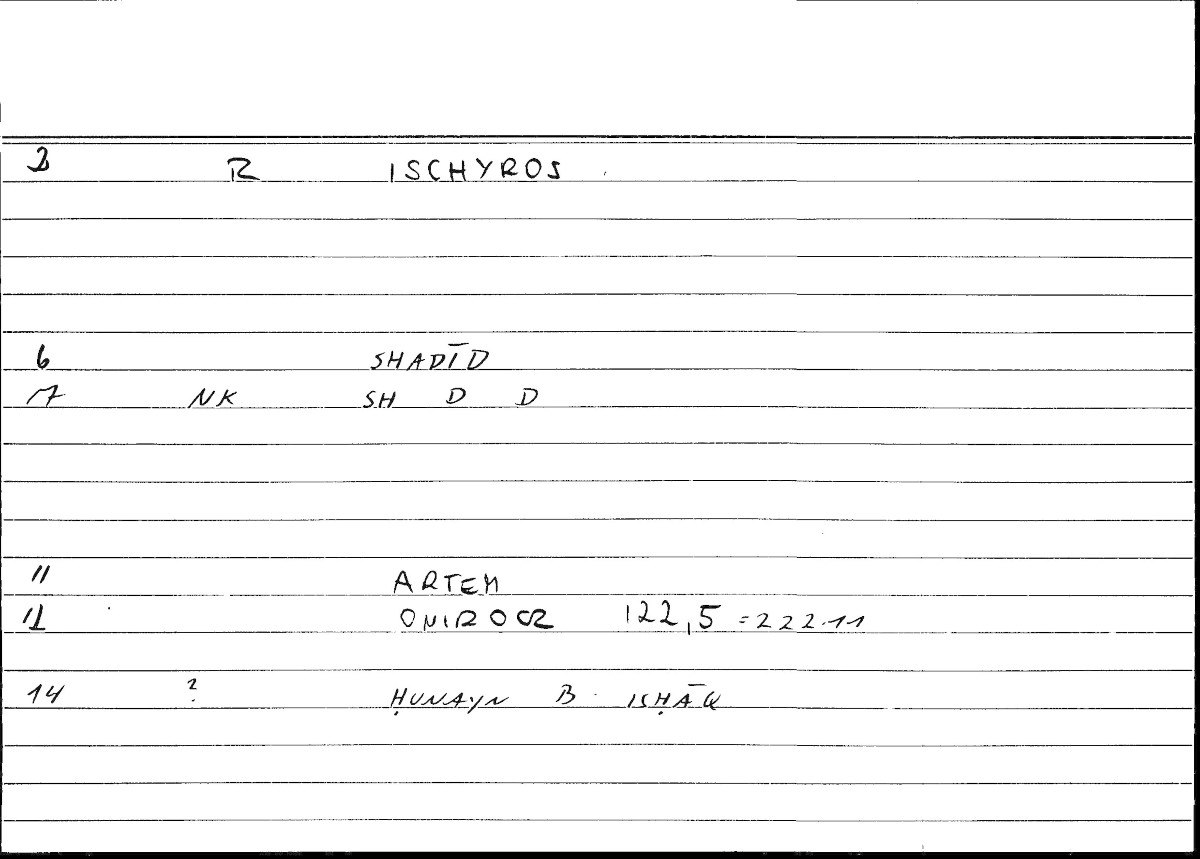 2 R ISCHYROS
6 SHADĪD
7 NK SH D D
11 ARTEM
12 ONIROCR 122,5 = 222.11
14 ? ḤUNAYN B. ISḤĀQ